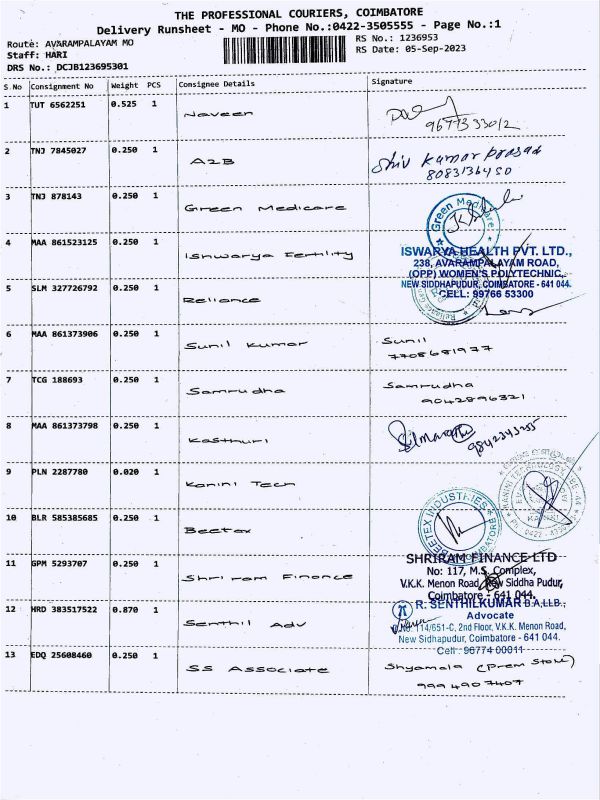 THE PROFESSIONAL COURIERS, COIMBATORE
Delivery Runsheet - MO - Phone No.:0422-3505555 - Page No.:1
Route: AVARAMPALAYAM MO
RS No.: 1236953
Staff: HARI
RS Date: 05-Sep-2023
DRS No.: DCJB123695301
S.No Consignment No Weight PCS Consignee Details Signature
1 TUT 6562251 0.525 1 Naveen
2 TNJ 7845027 0.250 1 A2B Shiv Kumar Prasad
8083136450
3 TNJ 878143 0.250 1 Green Medicare
Green Medicare
4 MAA 861523125 0.250 1 Ishwarya Fertility
ISWARYA HEALTH PVT. LTD.,
238, AVARAMPALAYAM ROAD,
(OPP) WOMEN'S POLYTECHNIC,
NEW SIDDHAPUDUR, COIMBATORE - 641 044.
CELL: 99766 53300
5 SLM 327726792 0.250 1 Reliance
6 MAA 861373906 0.250 1 Sunil Kumar Sunil
7708681977
7 TCG 188693 0.250 1 Samrudha Samrudha
9042896321
8 MAA 861373798 0.250 1 Kasthuri
9842343255
9 PLN 2287780 0.020 1 Kanini Tech
10 BLR 585385685 0.250 1 Beetex
BEETEX INDUSTRIES
COIMBATORE
11 GPM 5293707 0.250 1 Shri ram Finance
SHRIRAM FINANCE LTD
No: 117, M.S. Complex,
V.K.K. Menon Road, New Siddha Pudur,
Coimbatore - 641 044.
12 HRD 383517522 0.870 1 Senthil Adv
R. SENTHILKUMAR B.A,LLB.,
Advocate
114/651-C, 2nd Floor, V.K.K. Menon Road,
New Sidhapudur, Coimbatore - 641 044.
Cell: 96774 00011
13 EDQ 25608460 0.250 1 SS Associate Shyamala (Prem Store)
9994907407